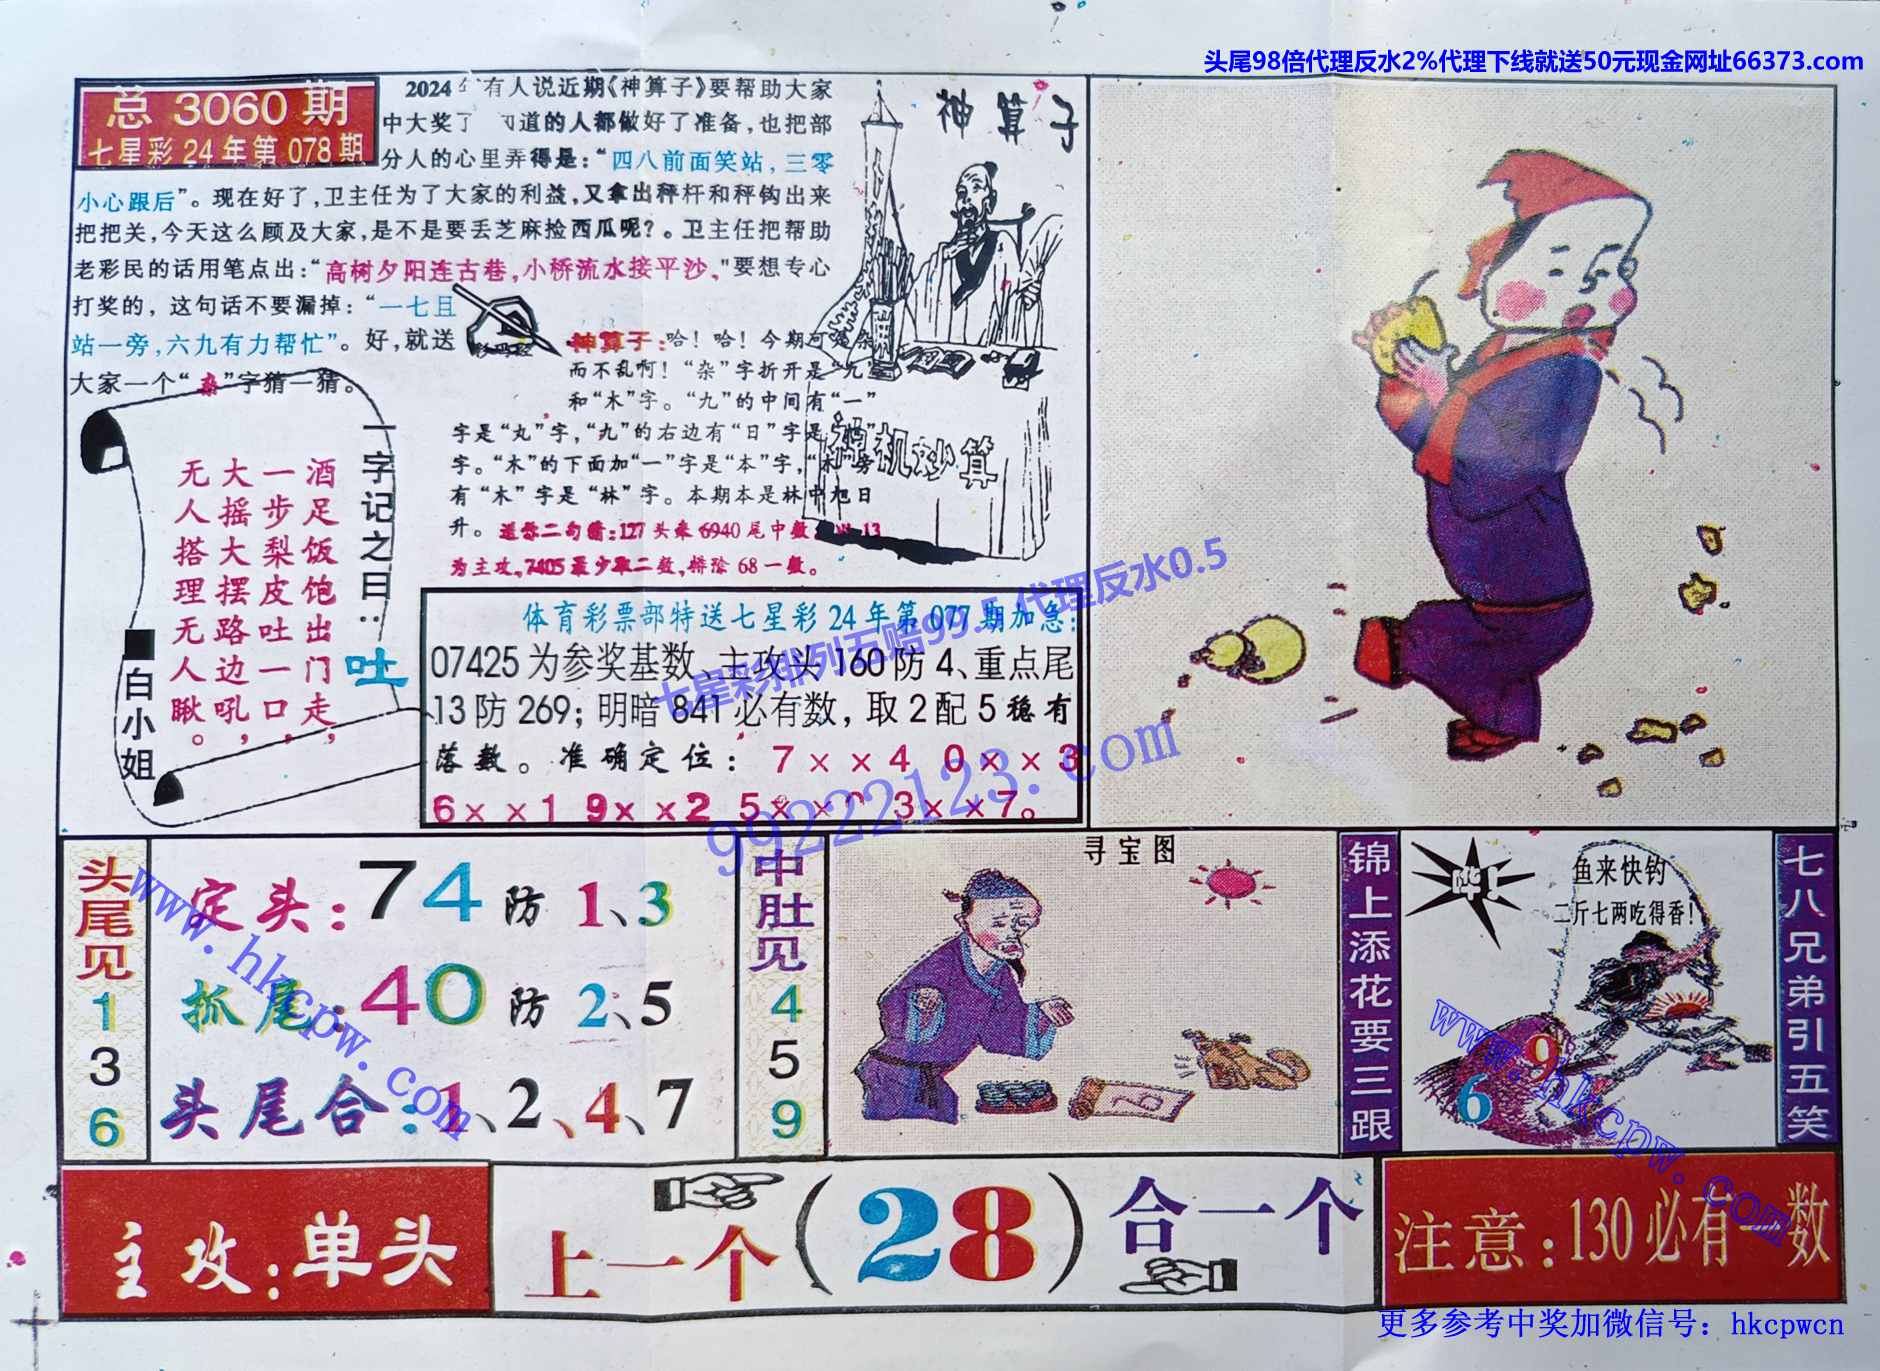 头尾98倍代理反水2%代理下线就送50元现金网址66373.com
总 3060 期
七星彩 24 年 第 078 期
2024 有人说近期《神算子》要帮助大家
中大奖了 道的人都做好了准备，也把部
分人的心里弄得是：“四八前面笑站，三零
小心跟后”。现在好了，卫主任为了大家的利益，又拿出秤杆和秤钩出来
把把关，今天这么顾及大家，是不是要丢芝麻捡西瓜呢？。卫主任把帮助
老彩民的话用笔点出：“高树夕阳连古巷，小桥流水接平沙，”要想专心
打奖的，这句话不要漏掉：“一七且
站一旁，六九有力帮忙”。好，就送
大家一个“杂”字猜一猜。
神算子
神算子：哈！哈！今期可 杂
而不乱啊！“杂”字折开是“九”
和“木”字。“九”的中间有“一”
字是“丸”字，“九”的右边有“日”字是
字。“木”的下面加“一”字是“本”字，“木”旁
有“木”字是“林”字。本期本是林中旭日
升。送你二句猜：127 头来 6940 尾中数 13
为主攻，7405 最少取二数，排除 68 一数。
神机妙算
一字记之曰：吐
酒足饭饱出门走，
一步梨皮吐一口，
大摇大摆路边吼，
无人搭理无人瞅。
白小姐
体育彩票部特送七星彩 24 年第 077 期加急：
07425 为参奖基数、主攻头 160 防 4、重点尾
13 防 269；明暗 841 必有数，取 2 配 5 稳有
落数。准确定位：7××4 0××3
6××1 9××2 5×× 3××7。
七星彩排列五赔99.5 代理反水0.5
99222123.com
头尾见
1
3
6
定头：74 防 1、3
抓尾：40 防 2、5
头尾合：1、2、4、7
www.hkcpw.com
中肚见
4
5
9
寻宝图
锦上添花要三跟
哗！
鱼来快钓
二斤七两吃得香！
9
6
www.hkcpw.com
七八兄弟引五笑
主攻：单头
上一个（28）合一个
注意：130 必有一数
更多参考中奖加微信号：hkcpwcn